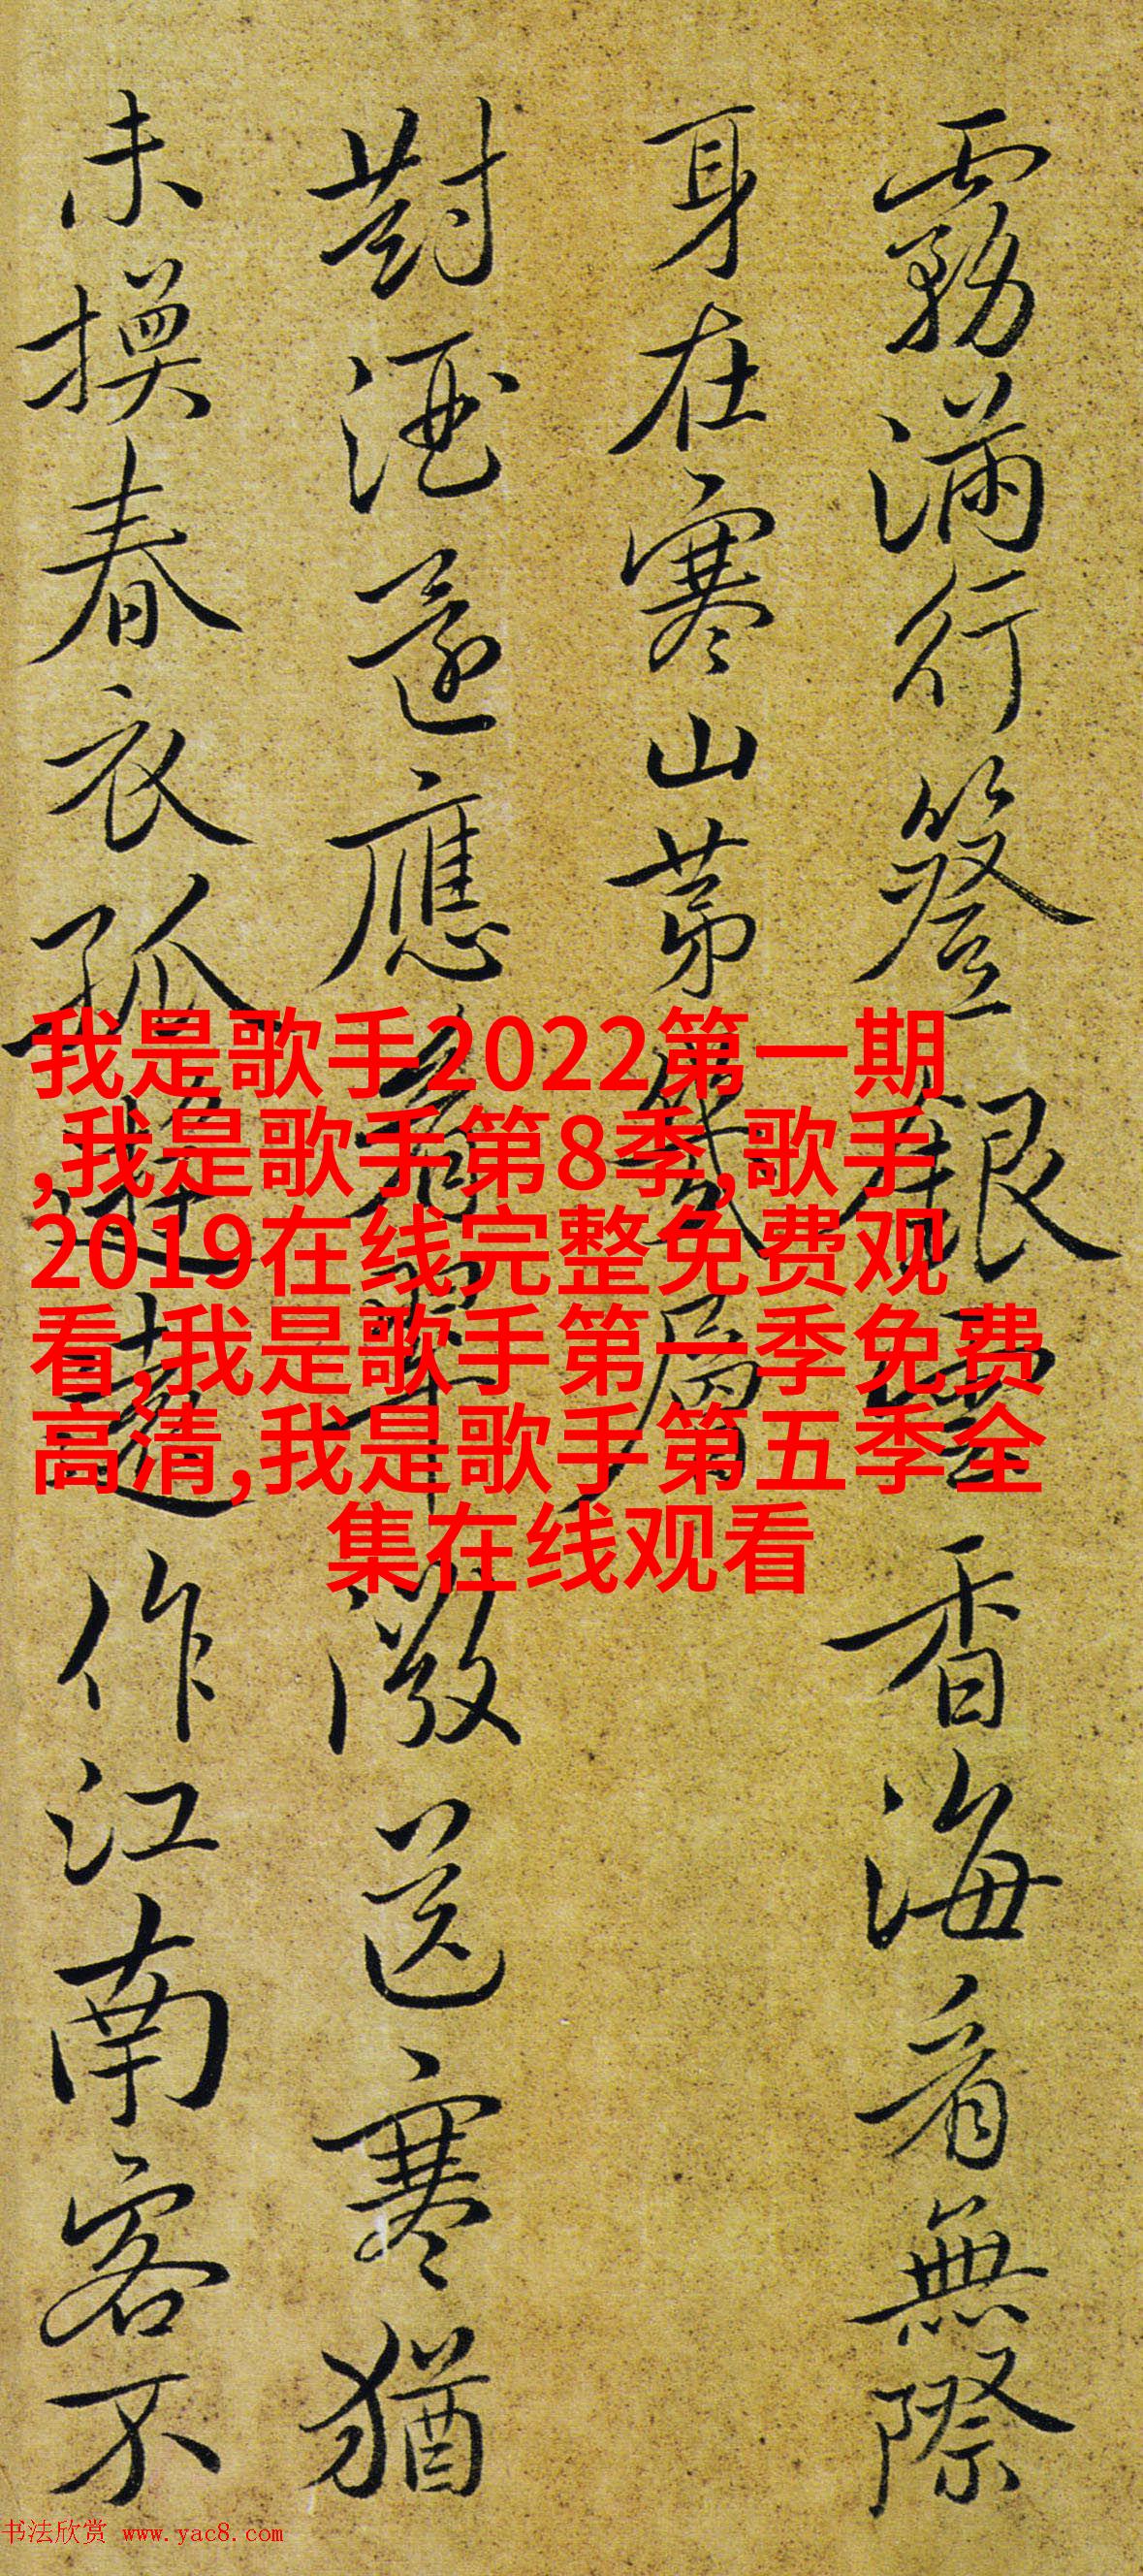 霧滿行簦 銀雲香海看無際
身在寒山第幾層
對酒還應看翠微送寒猶
未換春衣孤
作江南客不
我是歌手2022第一期
,我是歌手第8季,歌手
2019在线完整免费观
看,我是歌手第一季免费
高清,我是歌手第五季全
集在线观看
书法欣赏 www.yac8.com